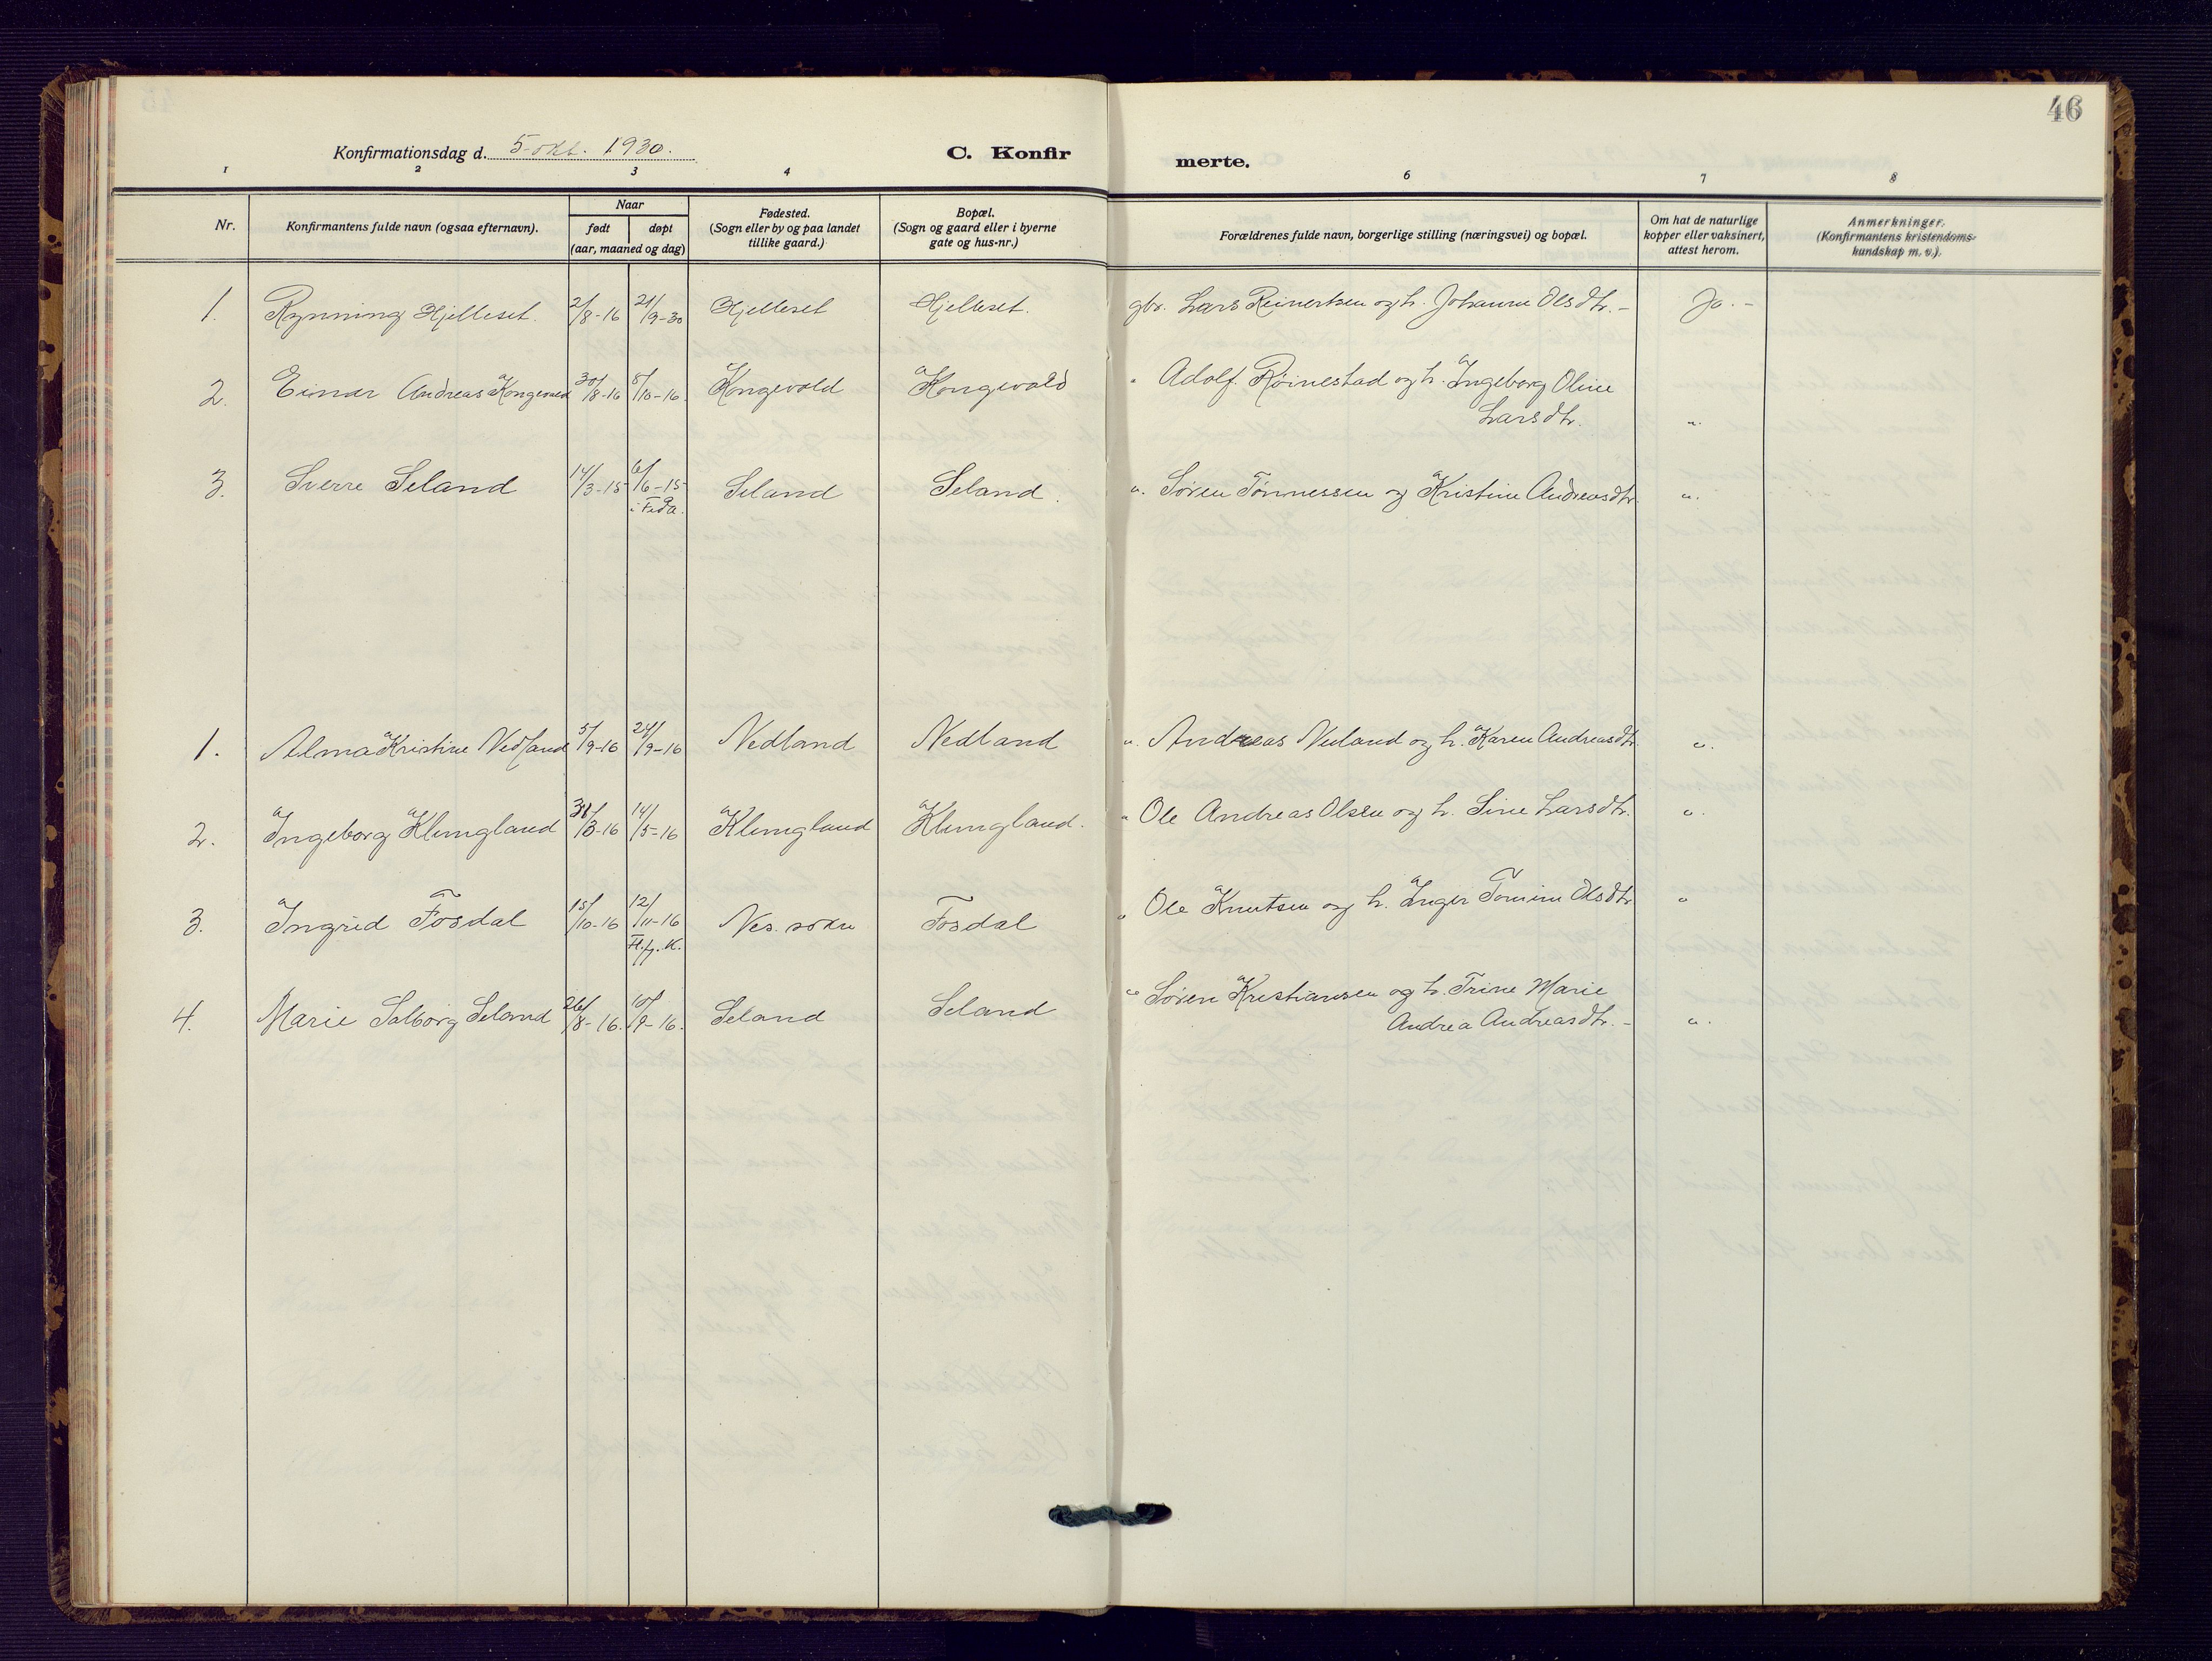 46
Konfirmationsdag d. 5 okt. 1930.
C. Konfir merte.
1 2 3 4 6 7 8
Nr.
Konfirmantens fulde navn (ogsaa efternavn).
Naar
født døpt
(aar, maaned og dag)
Fødested.
(Sogn eller by og paa landet
tillike gaard.)
Bopæl.
(Sogn og gaard eller i byerne
gate og hus-nr.)
Forældrenes fulde navn, borgerlige stilling (næringsvei) og bopæl.
Om hat de naturlige
kopper eller vaksinert,
attest herom.
Anmerkninger.
(Konfirmantens kristendoms-
kundskap m. v.).
1. Rynning Hjelleset. 2/8-16 21/9-30 Hjelleset Hjelleset. gbr. Lars Reinertsen og h. Johanne Olsdtr. - Ja. -
2. Einar Andreas Kongevold 30/8-16 8/10-16. Kongevold Kongevold " Adolf Røinestad og h. Ingeborg Oline
Larsdtr. "
3. Sverre Seland 14/3-15 6/6-15 Seland Seland. " Søren Tønnessen og Kristine Andreasdtr. "
i Feda.
1. Alma Kristine Nedland 5/9-16 24/9-16 Nedland Nedland " Andreas Neuland og h. Karen Andreasdtr. "
2. Ingeborg Klungland 31/3-16 14/5-16 Klungland Klungland. " Ole Andreas Olsen og h. Sine Larsdtr. "
3. Ingrid Fosdal 15/10-16 12/11-16 Nes. sokn Fosdal " Ole Knutsen og h. Inger Tomine Olsdtr "
Fl.fj. K.
4. Marie Salborg Seland 26/8-16. 10/9-16. Seland Seland " Søren Kristiansen og h. Trine Marie
Andrea Andreasdtr. - "